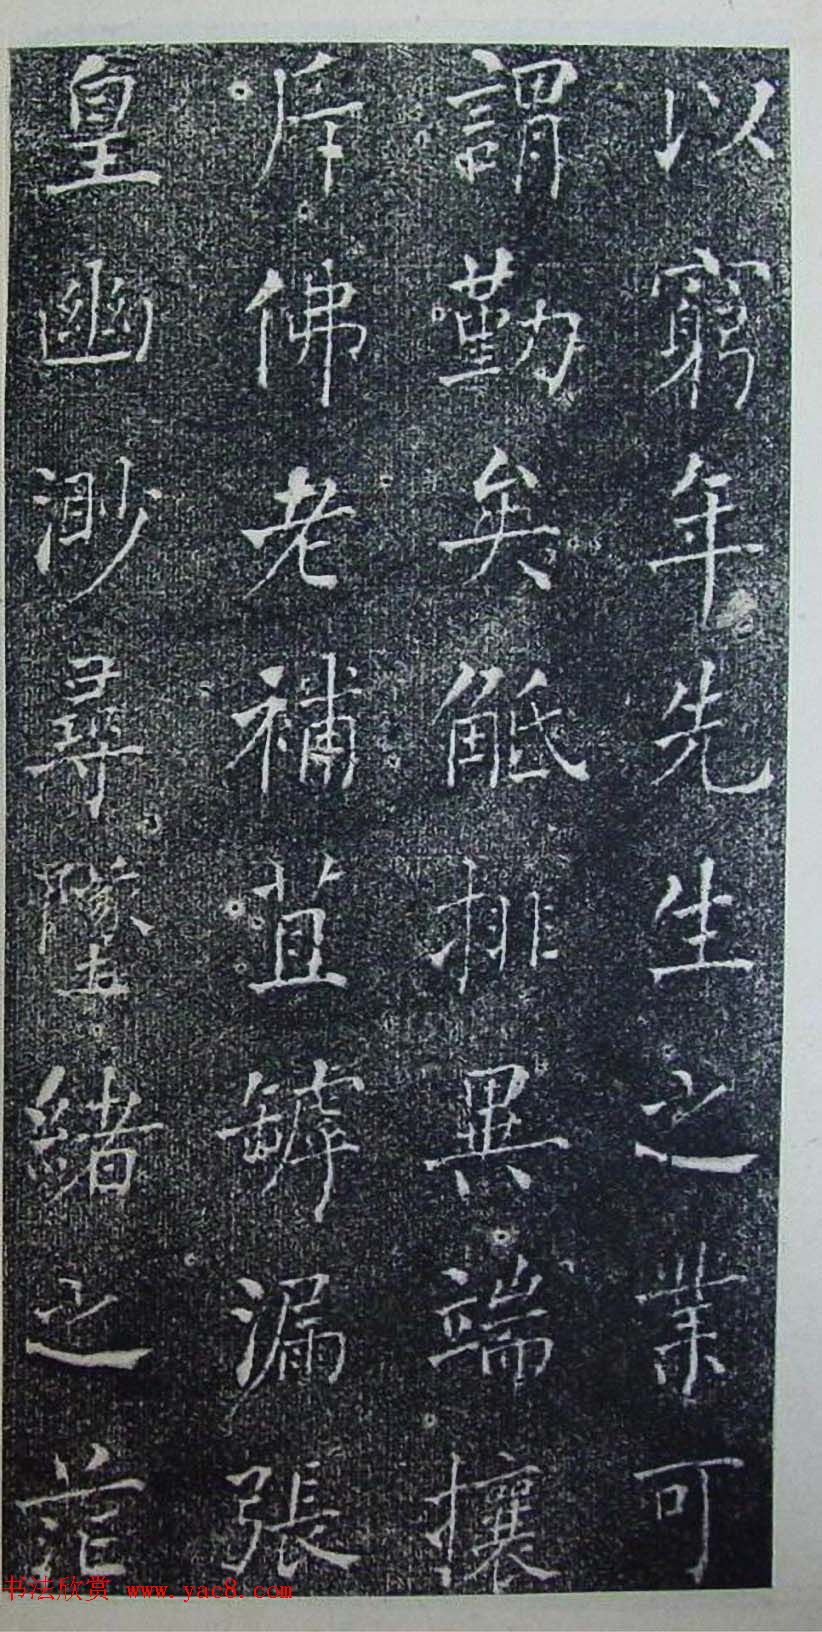 以窮年先生之業可
謂勤矣觝排異端攘
斥佛老補苴罅漏張
皇幽渺尋墜緒之茫
书法欣赏 www.yac8.com